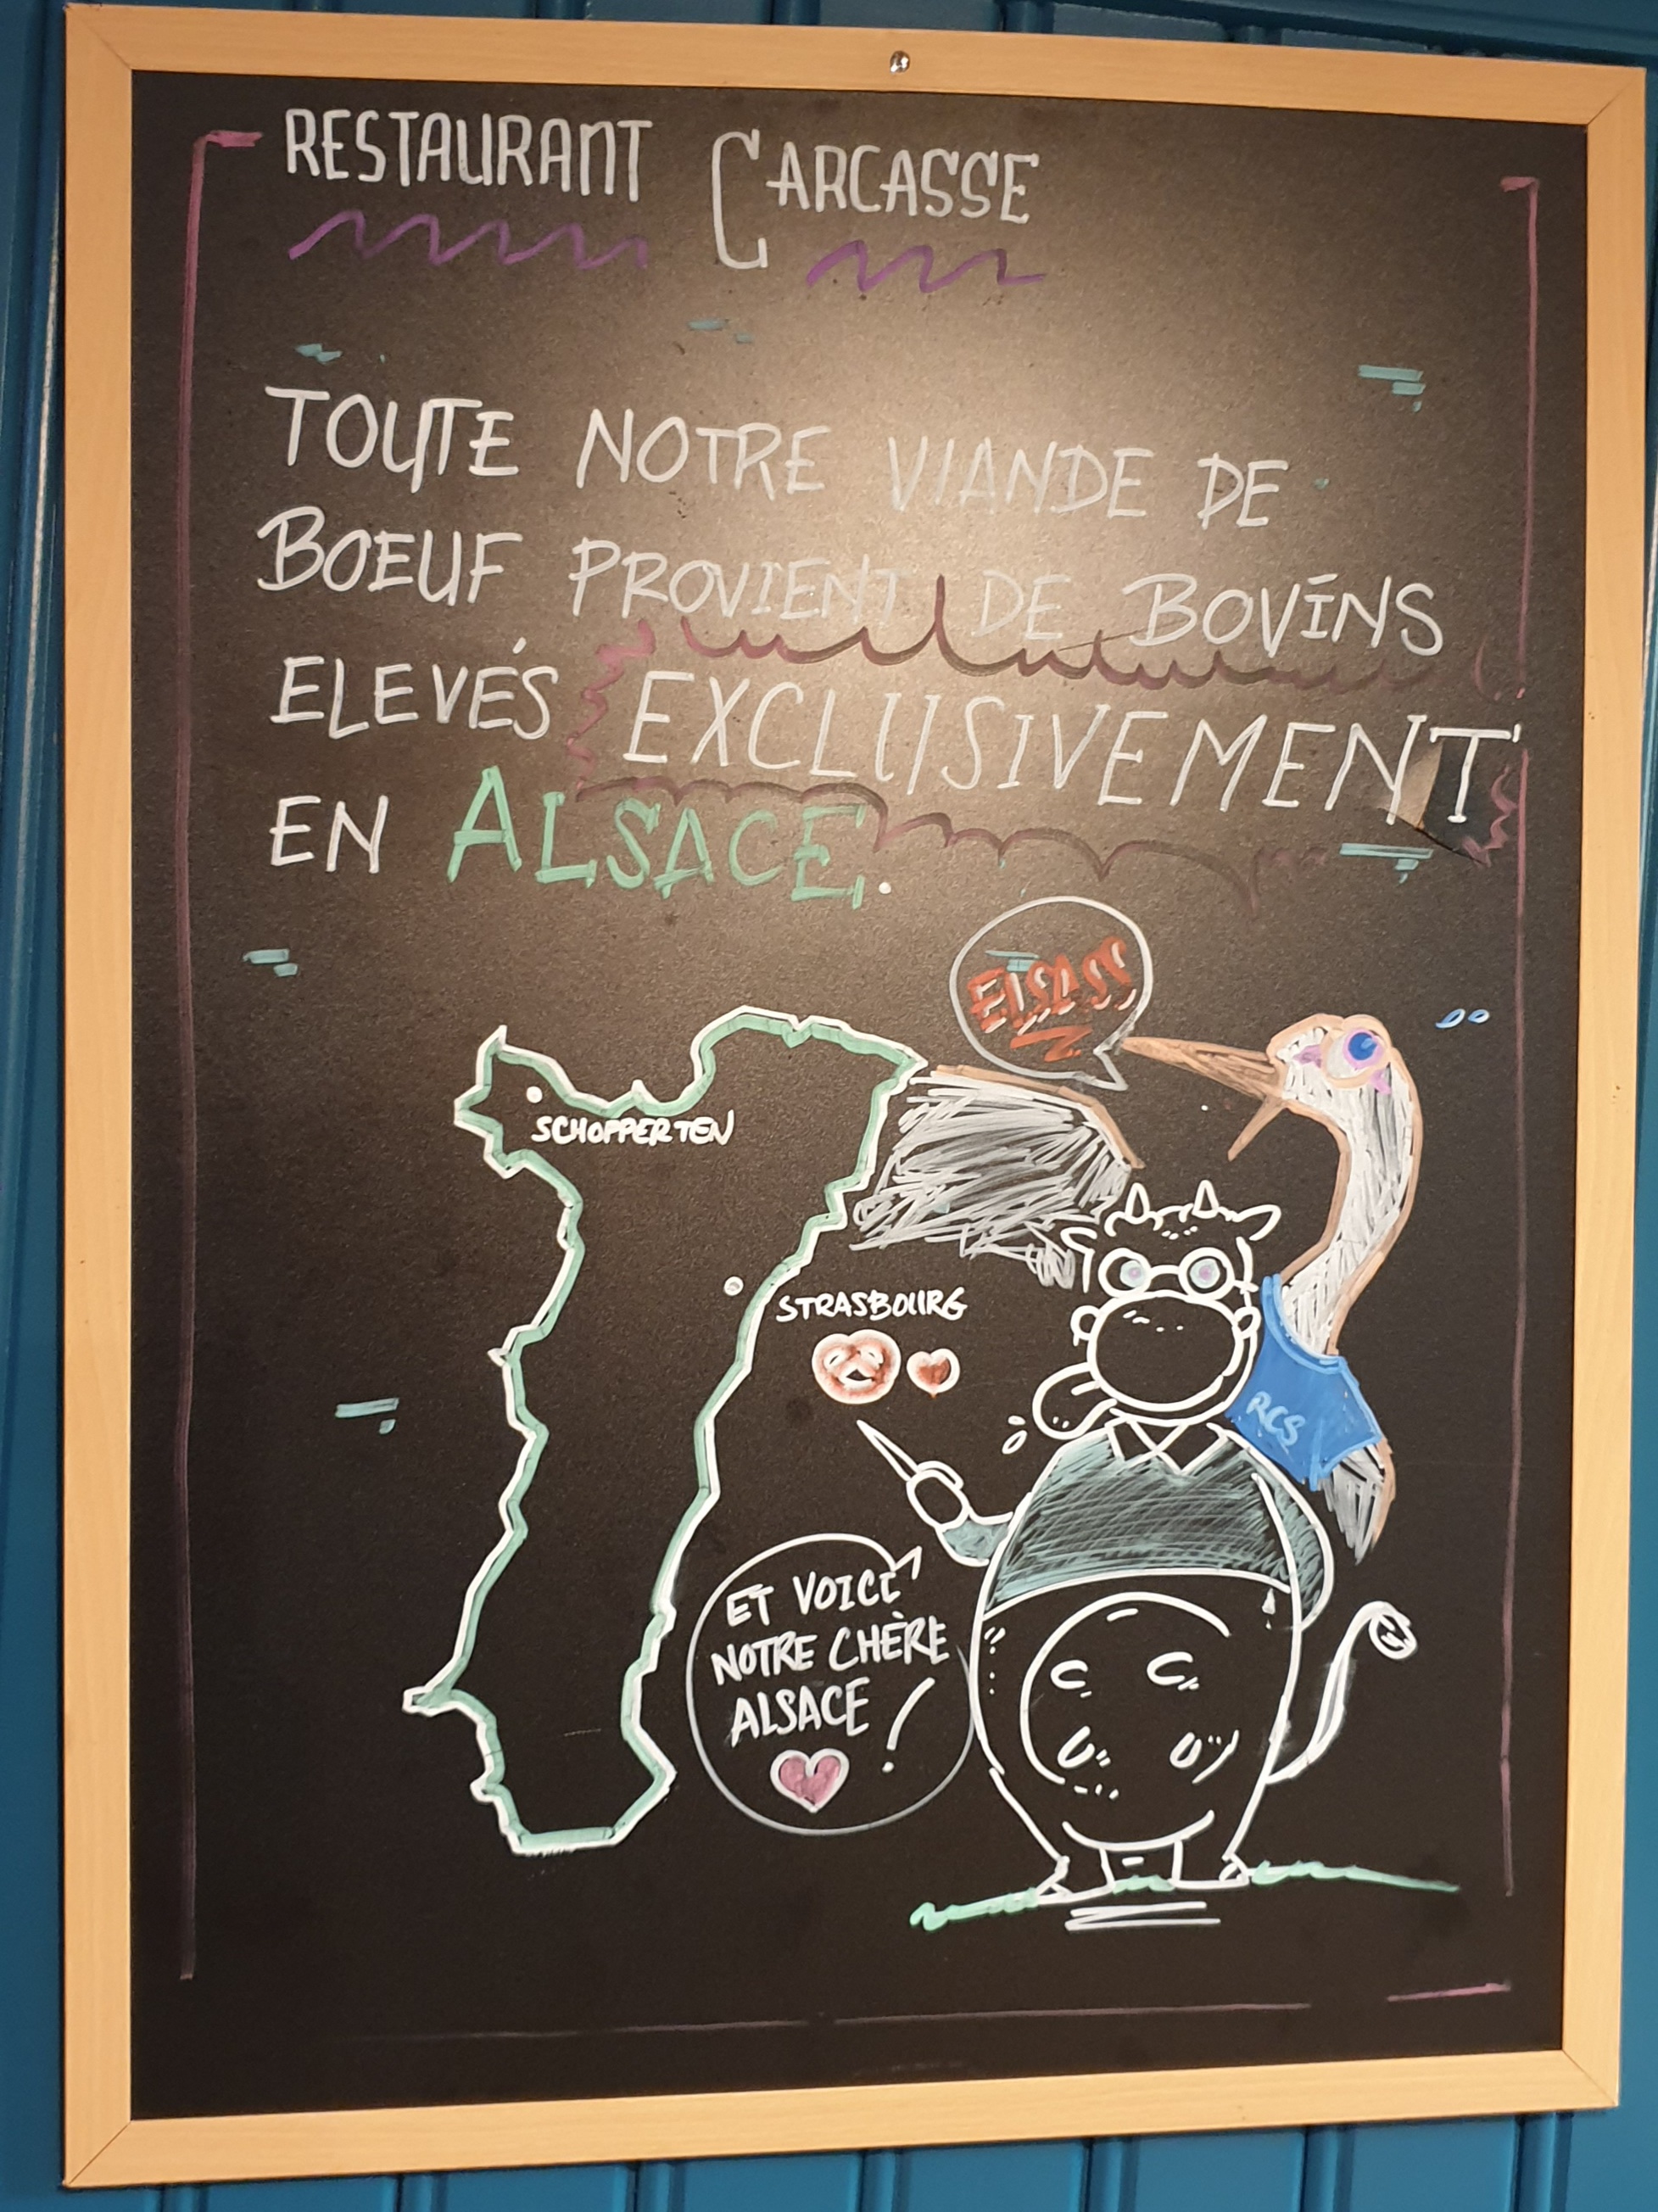 RESTAURANT CARCASSE
TOUTE NOTRE VIANDE DE
BOEUF PROVIENT DE BOVINS
ELEVÉS EXCLUSIVEMENT
EN ALSACE.
ELSASS
SCHOPPERTEN
STRASBOURG
RCS
ET VOICI
NOTRE CHÈRE
ALSACE !